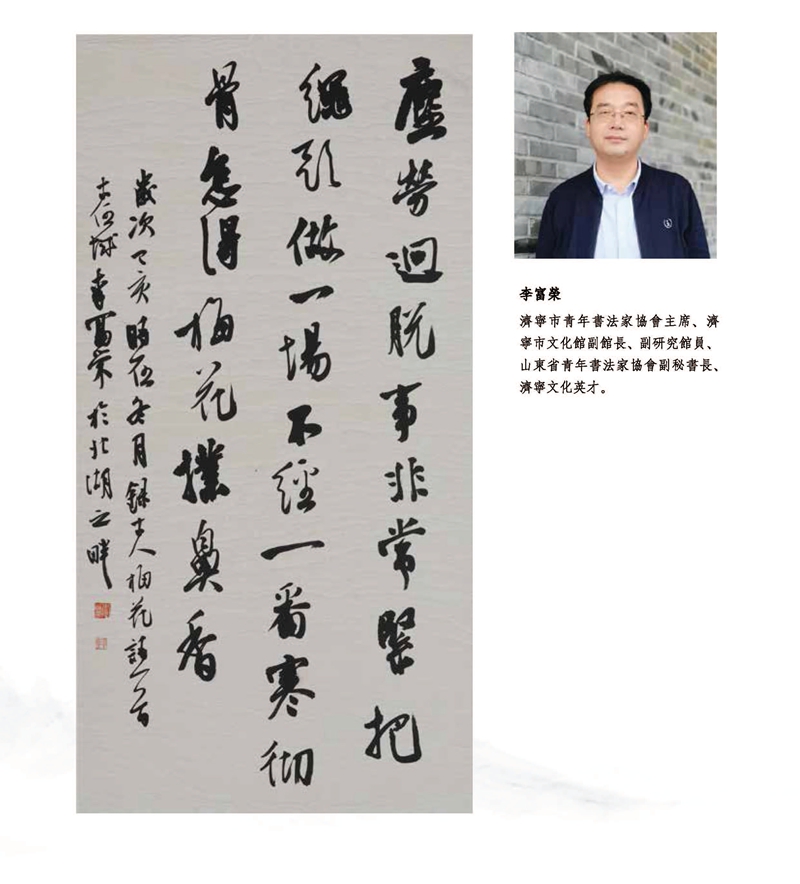 塵勞迴脱事非常緊把
繩頭做一場不經一番寒彻
骨怎得梅花撲鼻香
歲次己亥時在冬月録古人梅花詩一首
古任城李富榮於北湖之畔
李富榮
濟寧市青年書法家協會主席、濟
寧市文化館副館長、副研究館員、
山東省青年書法家協會副秘書長、
濟寧文化英才。